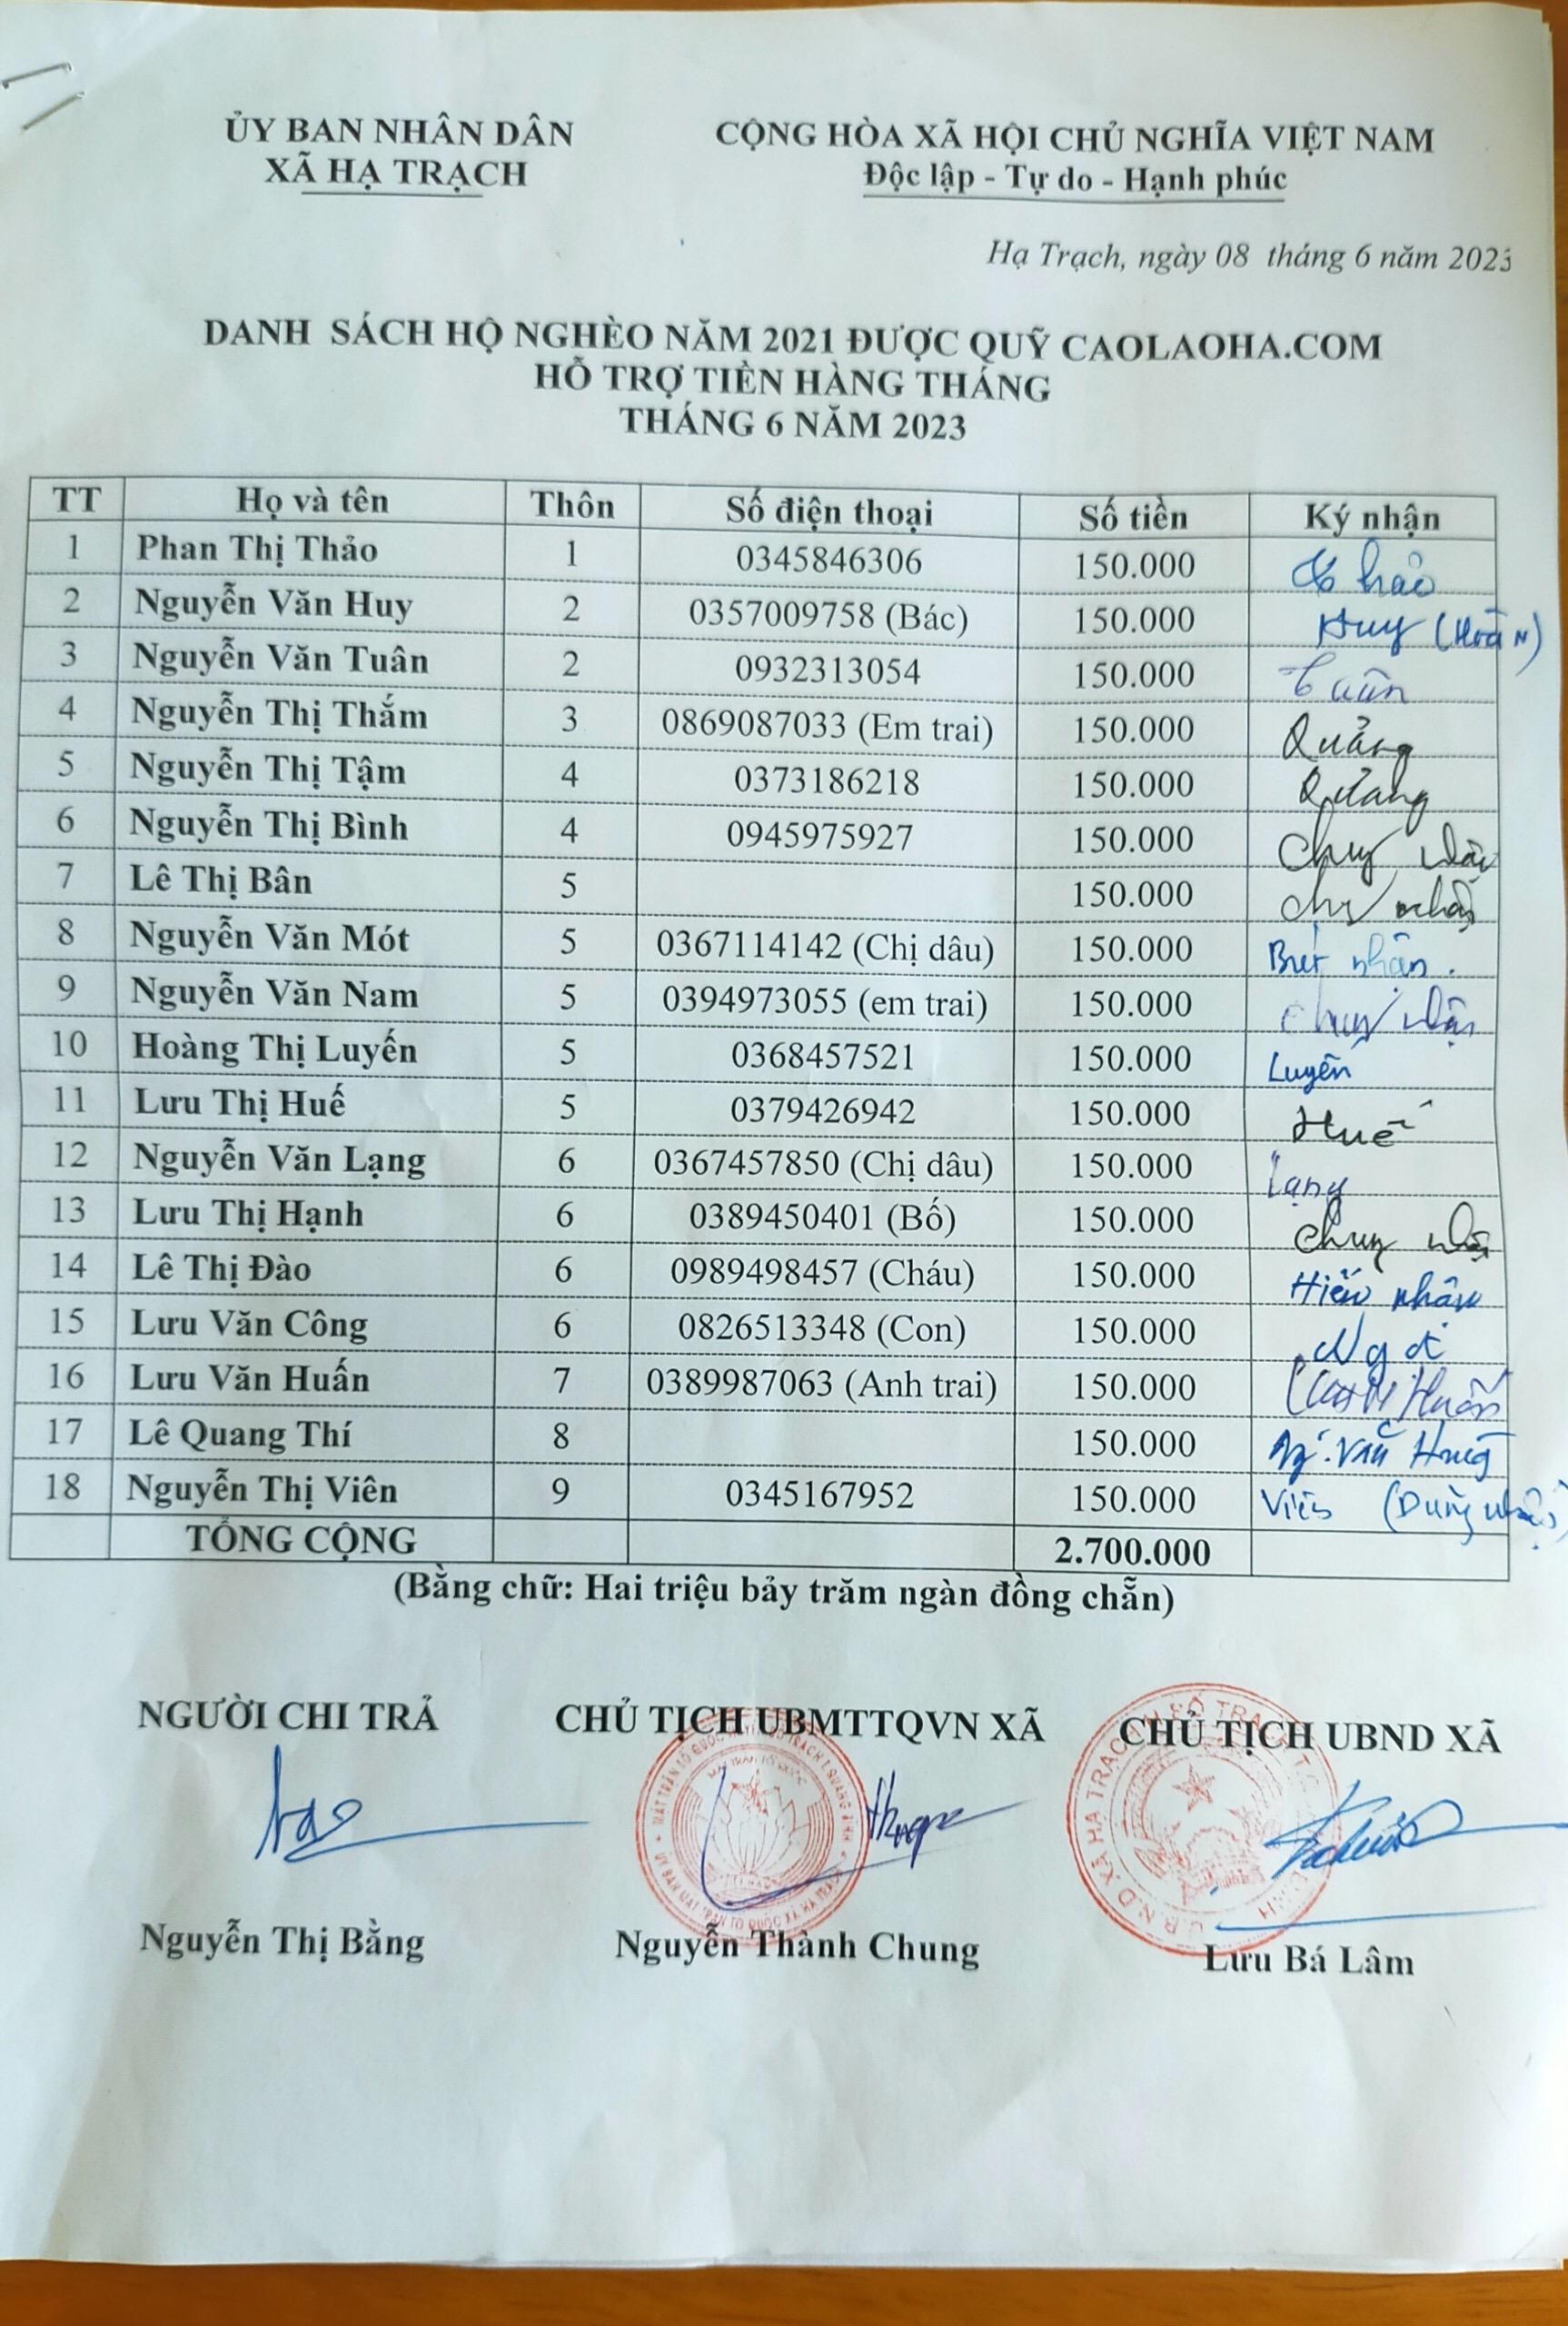 ỦY BAN NHÂN DÂN
XÃ HẠ TRẠCH
CỘNG HÒA XÃ HỘI CHỦ NGHĨA VIỆT NAM
Độc lập - Tự do - Hạnh phúc
Hạ Trạch, ngày 08 tháng 6 năm 2023
DANH SÁCH HỘ NGHÈO NĂM 2021 ĐƯỢC QUỸ CAOLAOHA.COM
HỖ TRỢ TIỀN HÀNG THÁNG
THÁNG 6 NĂM 2023
TT Họ và tên Thôn Số điện thoại Số tiền Ký nhận
1 Phan Thị Thảo 1 0345846306 150.000 Thảo
2 Nguyễn Văn Huy 2 0357009758 (Bác) 150.000 Huy (Hoàn)
3 Nguyễn Văn Tuân 2 0932313054 150.000 Tuân
4 Nguyễn Thị Thắm 3 0869087033 (Em trai) 150.000 Quảng
5 Nguyễn Thị Tậm 4 0373186218 150.000 Quảng
6 Nguyễn Thị Bình 4 0945975927 150.000
7 Lê Thị Bân 5 150.000
8 Nguyễn Văn Mót 5 0367114142 (Chị dâu) 150.000 nhận.
9 Nguyễn Văn Nam 5 0394973055 (em trai) 150.000
10 Hoàng Thị Luyến 5 0368457521 150.000 Luyến
11 Lưu Thị Huế 5 0379426942 150.000 Huế
12 Nguyễn Văn Lạng 6 0367457850 (Chị dâu) 150.000 Lạng
13 Lưu Thị Hạnh 6 0389450401 (Bố) 150.000
14 Lê Thị Đào 6 0989498457 (Cháu) 150.000 nhận
15 Lưu Văn Công 6 0826513348 (Con) 150.000
16 Lưu Văn Huấn 7 0389987063 (Anh trai) 150.000 Huấn
17 Lê Quang Thí 8 150.000
18 Nguyễn Thị Viên 9 0345167952 150.000 Viên
TỔNG CỘNG 2.700.000
(Bằng chữ: Hai triệu bảy trăm ngàn đồng chẵn)
NGƯỜI CHI TRẢ
CHỦ TỊCH UBMTTQVN XÃ
CHỦ TỊCH UBND XÃ
Nguyễn Thị Bằng
Nguyễn Thành Chung
Lưu Bá Lâm